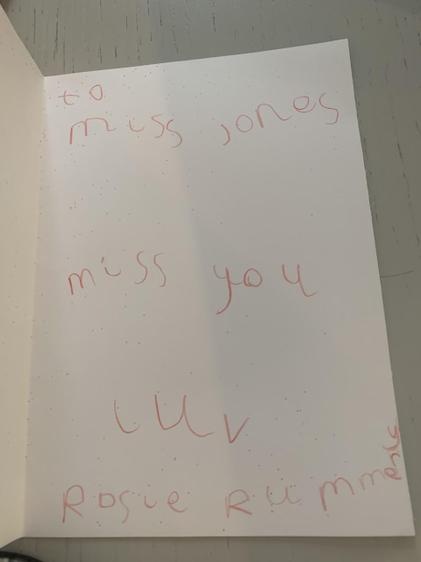 to
miss jones
miss you
luv
Rosie